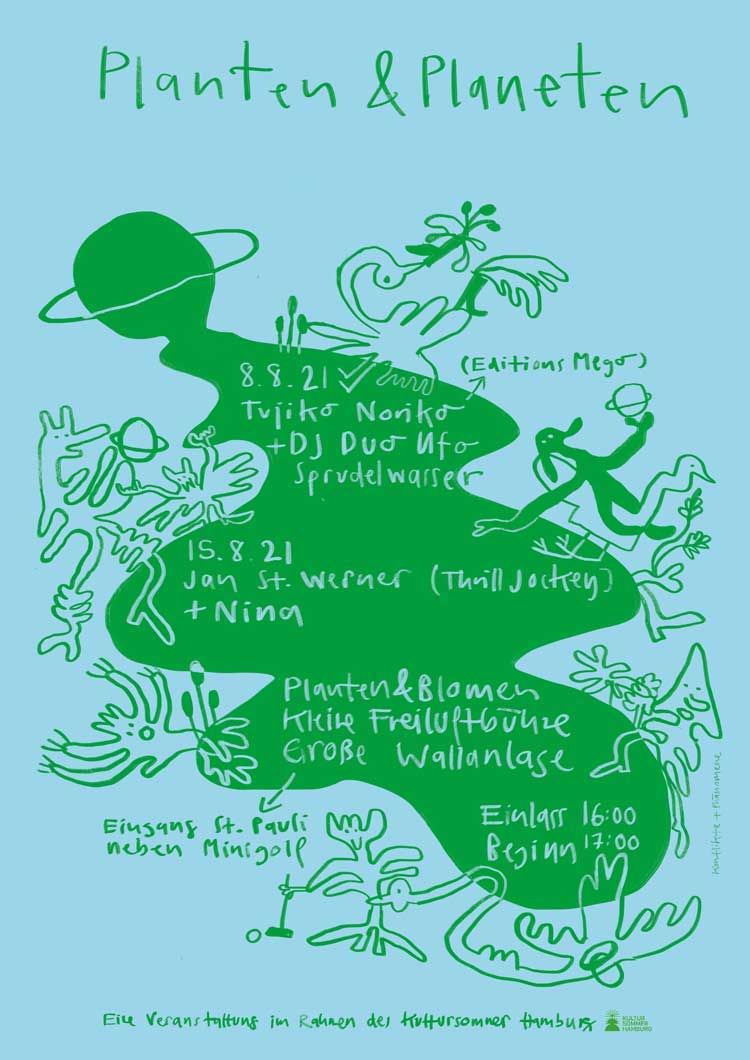 Planten & Planeten
8.8.21
(Editions Mego)
Tujiko Noriko
+ DJ Duo Ufo
Sprudelwasser
15.8.21
Jan St. Werner (Thrill Jockey)
+ Nina
Planten & Blomen
Kleine Freiluftbühne
Große Wallanlage
Einlass 16:00
Beginn 17:00
Eingang St. Pauli
neben Minigolf
Konflikte + Phänomene
Eine Veranstaltung im Rahmen des Kultursommer Hamburg
KULTUR
SOMMER
HAMBURG